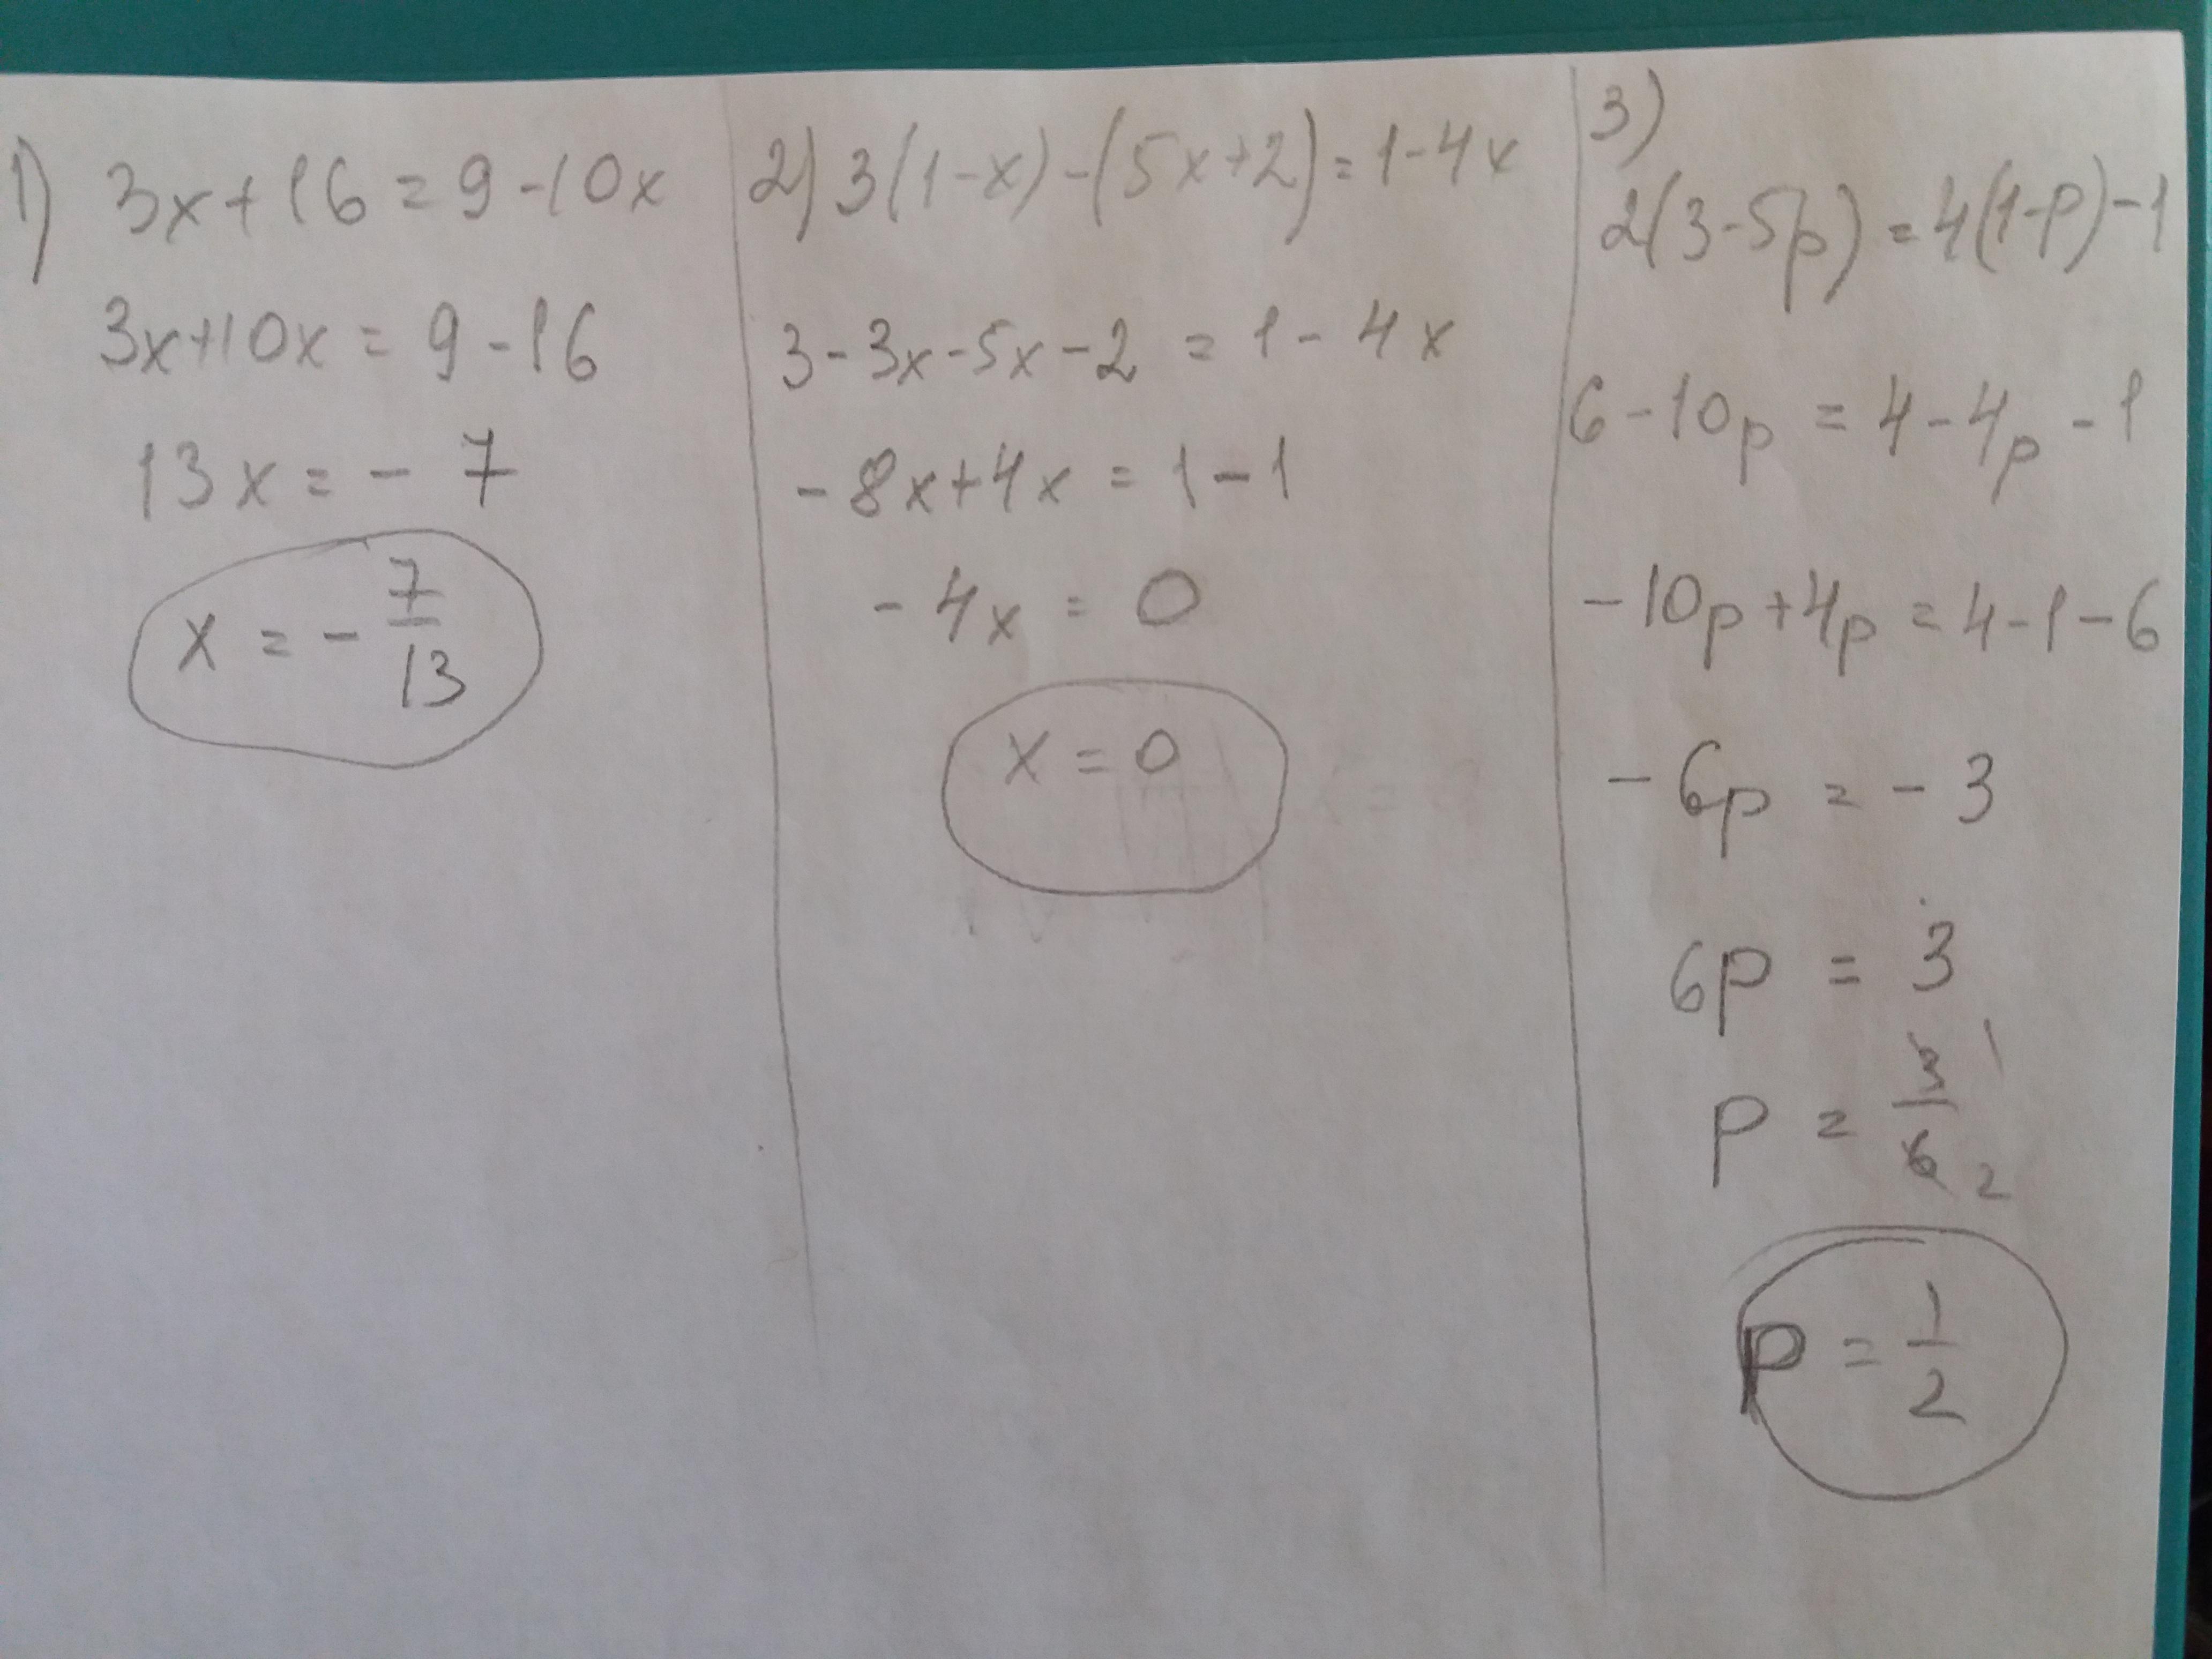 1) 3x+16=9-10x
3x+10x=9-16
13x=-7
x=-7/13
2) 3(1-x)-(5x+2)=1-4x
3-3x-5x-2=1-4x
-8x+4x=1-1
-4x=0
x=0
3)
2(3-5p)=4(1-p)-1
6-10p=4-4p-1
-10p+4p=4-1-6
-6p=-3
6p=3
p=3/6 1 2
p=1/2